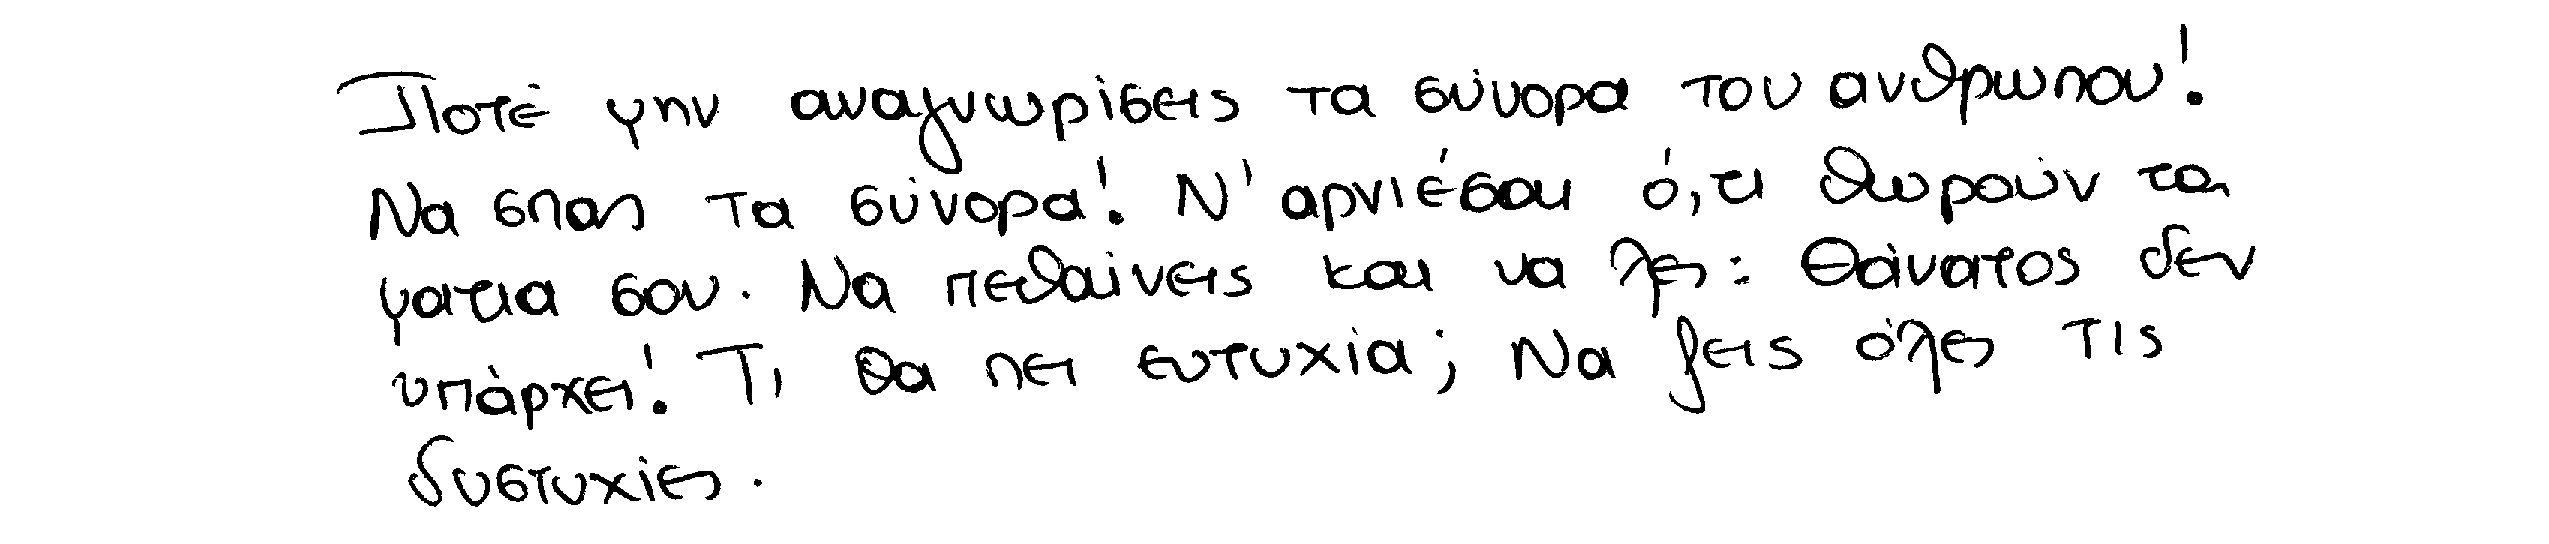 Ποτέ μην αναγνωρίσεις τα σύνορα του ανθρωπου!
Να σπας τα σύνορα! Ν' αρνιέσαι ό,τι θωρούν τα
ματια σου. Να πεθαίνεις και να λες: Θάνατος δεν
υπάρχει! Τι θα πει ευτυχία; Να ζεις όλες τις
δυστυχίες.